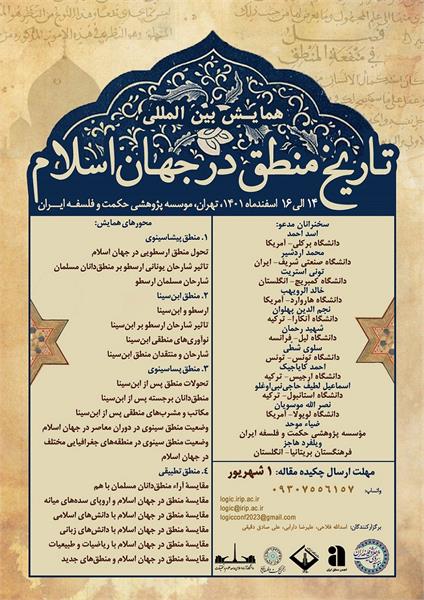 همایش بین المللی
تاریخ منطق در جهان اسلام
۱۴ الی ۱۶ اسفندماه ۱۴۰۱، تهران، موسسه پژوهشی حکمت و فلسفه ایران
محورهای همایش:
۱. منطق پیشاسینوی
تحول منطق ارسطویی در جهان اسلام
تاثیر شارحان یونانی ارسطو بر منطق‌دانان مسلمان
شارحان مسلمان ارسطو
۲. منطق ابن‌سینا
ارسطو و ابن‌سینا
تاثیر شارحان ارسطو بر ابن‌سینا
نوآوری‌های منطقی ابن‌سینا
شارحان و منتقدان منطق ابن‌سینا
۳. منطق پساسینوی
تحولات منطق پس از ابن‌سینا
منطق‌دانان برجسته پس از ابن‌سینا
مکاتب و مشرب‌های منطقی پس از ابن‌سینا
وضعیت منطق سینوی در دوران معاصر در جهان اسلام
وضعیت منطق سینوی در منطقه‌های جغرافیایی مختلف
در جهان اسلام
۴. منطق تطبیقی
مقایسهٔ آراء منطق‌دانان مسلمان با هم
مقایسهٔ منطق در جهان اسلام و اروپای سده‌های میانه
مقایسهٔ منطق در جهان اسلام با دانش‌های اسلامی
مقایسهٔ منطق در جهان اسلام با دانش‌های زبانی
مقایسهٔ منطق در جهان اسلام با ریاضیات و طبیعیات
مقایسهٔ منطق در جهان اسلام و منطق‌های جدید
سخنرانان مدعو:
اسد احمد
دانشگاه برکلی- آمریکا
محمد اردشیر
دانشگاه صنعتی شریف- ایران
تونی استریت
دانشگاه کمبریج- انگلستان
خالد الرویهب
دانشگاه هاروارد- آمریکا
نجم الدین پهلوان
دانشگاه آنکارا- ترکیه
شهید رحمان
دانشگاه لیل- فرانسه
سلوی شطی
دانشگاه تونس- تونس
احمد کایاجیک
دانشگاه ارجیس- ترکیه
اسماعیل لطیف حاجی‌نبی‌اوغلو
دانشگاه استانبول- ترکیه
نصر الله موسویان
دانشگاه لویولا- آمریکا
ضیاء موحد
مؤسسه پژوهشی حکمت و فلسفه ایران
ویلفرد هاجز
فرهنگستان بریتانیا- انگلستان
مهلت ارسال چکیده مقاله: ۱ شهریور
واتساپ: ۰۹۳۰۷۵۵۶۱۵۷
logic.irip.ac.ir
logic@irip.ac.ir
logicconf2023@gmail.com
برگزارکنندگان: اسدالله فلاحی، علیرضا دارابی، علی صادق دقیقی
انجمن منطق ایران